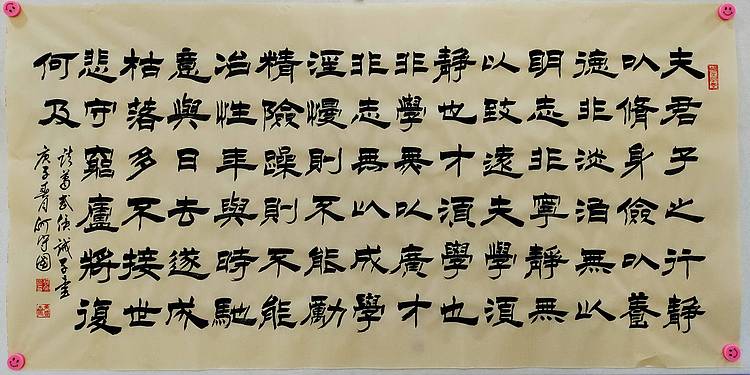 夫君子之行靜
以脩身儉以養
德非淡泊無以
明志非寧靜無
以致遠夫學須
靜也才須學也
非學无以廣才
非志无以成學
淫慢則不能勵
精險躁則不能
冶性年與時馳
意與日去遂成
枯落多不接世
悲守窮廬將復
何及
諸葛武侯誡子書
庚子春月守國